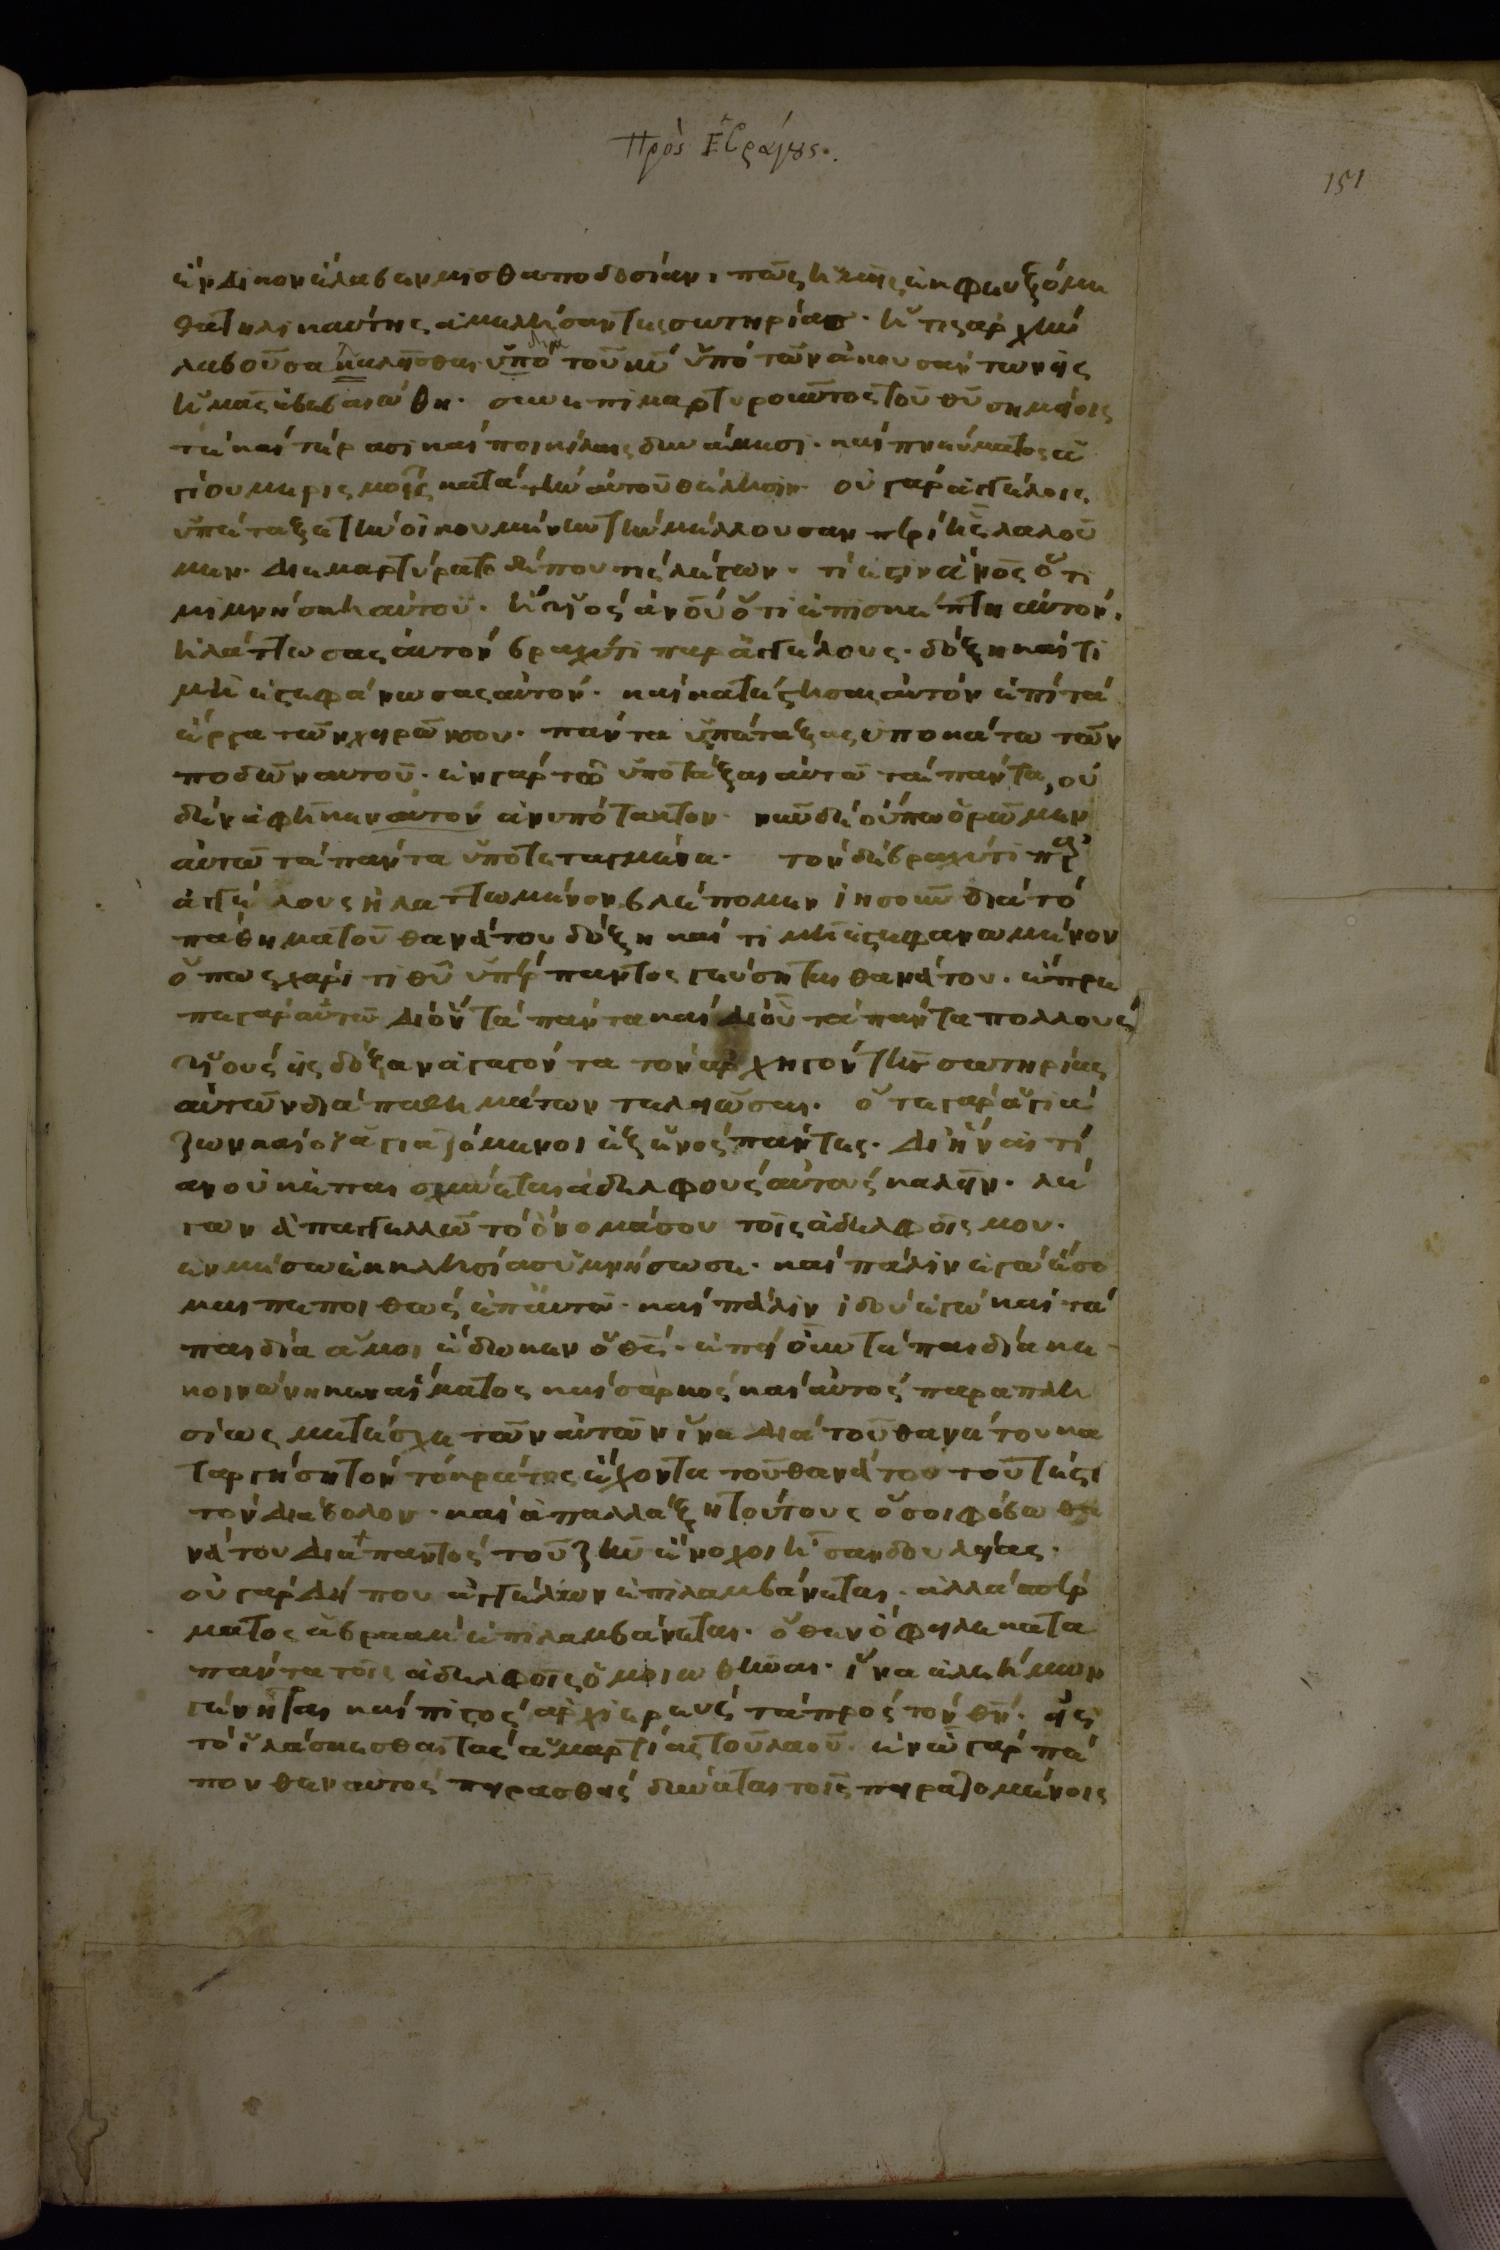 Πρὸς Ἑβραίους.
151
ἔνδικον ἔλαβεν μισθαποδοσίαν, πῶς ἡμεῖς ἐκφευξόμε
θα τηλικαύτης ἀμελήσαντες σωτηρίας. ἥτις ἀρχὴν
λαβοῦσα λαλεῖσθαι ὑπὸ τοῦ κυ ὑπὸ τῶν ἀκουσάντων εἰς
ἡμᾶς ἐβεβαιώθη. συνεπιμαρτυροῦντος τοῦ θυ σημείοις
τε καὶ τέρασι καὶ ποικίλαις δυνάμεσι. καὶ πνεύματος ἁ
γίου μερισμοῖς κατὰ τὴν αὐτοῦ θέλησιν. οὐ γὰρ ἀγγέλοις
ὑπέταξε τὴν οἰκουμένην τὴν μέλλουσαν περὶ ἧς λαλοῦ
μεν. διεμαρτύρατο δέ που τις λέγων. τί ἐστιν ανος ὅτι
μιμνήσκη αὐτοῦ. ἢ υἱὸς ανου ὅτι ἐπισκέπτη αὐτόν.
ἠλάττωσας αὐτὸν βραχύ τι παρ ἀγγέλους. δόξη καὶ τι
μῆ ἐστεφάνωσας αὐτόν. καὶ κατέστησας αὐτὸν ἐπὶ τὰ
ἔργα τῶν χειρῶν σου. πάντα ὑπέταξας ὑποκάτω τῶν
ποδῶν αὐτοῦ. ἐν γὰρ τῶ ὑποτάξαι αὐτῶ τὰ πάντα, οὐ
δὲν ἀφῆκεν αὐτὸν ἀνυπότακτον. νῦν δὲ οὔπω ὁρῶμεν
αὐτῶ τὰ πάντα ὑποτεταγμένα. τὸν δὲ βραχύ τι παρ
ἀγγέλους ἠλαττωμένον βλέπομεν ἰησοῦν διὰ τὸ
πάθημα τοῦ θανάτου δόξη καὶ τιμῆ ἐστεφανωμένον
ὅπως χάριτι θυ ὑπὲρ παντὸς γεύσηται θανάτου. ἔπρε
πε γὰρ αὐτῶ δι ὃν τὰ πάντα καὶ δι οὗ τὰ πάντα πολλοὺς
υἱοὺς εἰς δόξαν ἀγαγόντα τὸν ἀρχηγὸν τῆς σωτηρίας
αὐτῶν διὰ παθημάτων τελειῶσαι. ὅ τε γὰρ ἁγιά
ζων καὶ οἱ ἁγιαζόμενοι ἐξ ἑνὸς πάντες. δι ἣν αἰτί
αν οὐκ ἐπαισχύνεται ἀδελφοὺς αὐτοὺς καλεῖν. λέ
γων ἀπαγγελλῶ τὸ ὄνομά σου τοῖς ἀδελφοῖς μου.
ἐν μέσω ἐκκλησίας ὑμνήσω σε. καὶ πάλιν ἐγὼ ἔσο
μαι πεποιθὼς ἐπ αὐτῶ. καὶ πάλιν ἰδοὺ ἐγὼ καὶ τὰ
παιδία ἅ μοι ἔδωκεν ὁ θς. ἐπεὶ οὖν τὰ παιδία κε
κοινώνηκεν αἵματος καὶ σαρκὸς καὶ αὐτὸς παραπλη
σίως μετέσχε τῶν αὐτῶν ἵνα διὰ τοῦ θανάτου κα
ταργήση τὸν τὸ κράτος ἔχοντα τοῦ θανάτου τουτέστι
τὸν διάβολον. καὶ ἀπαλλάξη τούτους ὅσοι φόβω θα
νάτου διὰ παντὸς τοῦ ζῆν ἔνοχοι ἦσαν δουλείας.
οὐ γὰρ δή που ἀγγέλων ἐπιλαμβάνεται. ἀλλὰ σπέρ
ματος ἁβραὰμ ἐπιλαμβάνεται. ὅθεν ὤφειλε κατὰ
πάντα τοῖς ἀδελφοῖς ὁμοιωθῆναι. ἵνα ἐλεήμων
γένηται καὶ πιστὸς ἀρχιερεὺς τὰ πρὸς τὸν θν. εἰς
τὸ ἱλάσκεσθαι τὰς ἁμαρτίας τοῦ λαοῦ. ἐν ὧ γὰρ πέ
πονθεν αὐτὸς πειρασθεὶς δύναται τοῖς πειραζομένοις